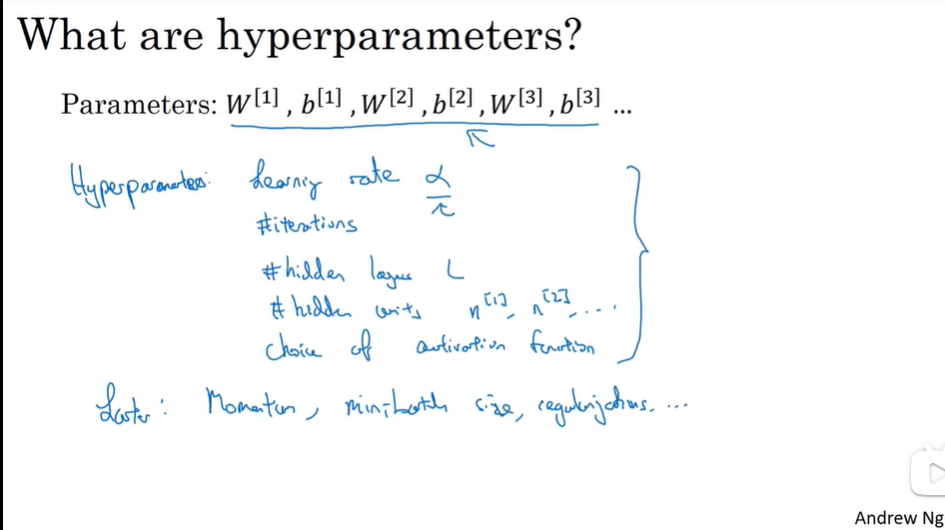 What are hyperparameters?
Parameters: W[1] , b[1] , W[2] , b[2] , W[3] , b[3] ...
Hyperparameters: Learning rate α
#iterations
# hidden layers L
# hidden units n[1], n[2], ...
choice of activation function
Later: Momentum, minibatch size, regularizations, ...
Andrew Ng